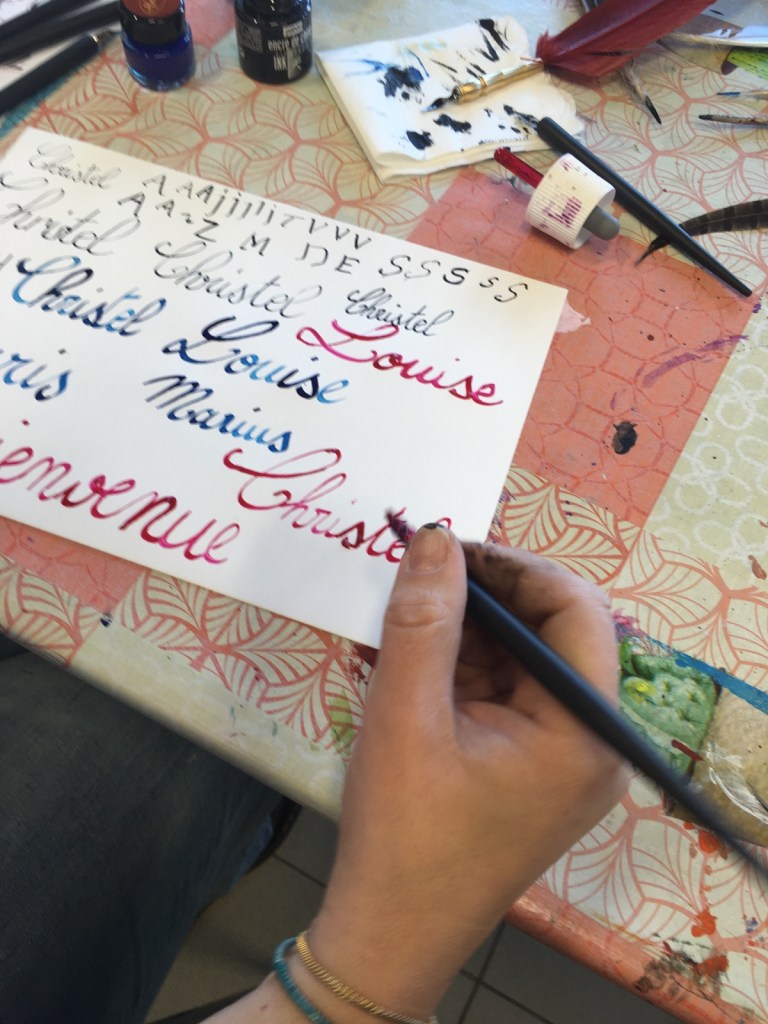 Christel A A A j i l l i T V V V
A A Z M N E S S S S S
Christel Christel Christel
Christel Louise Louise
Marius
ienvenue Christel
INK